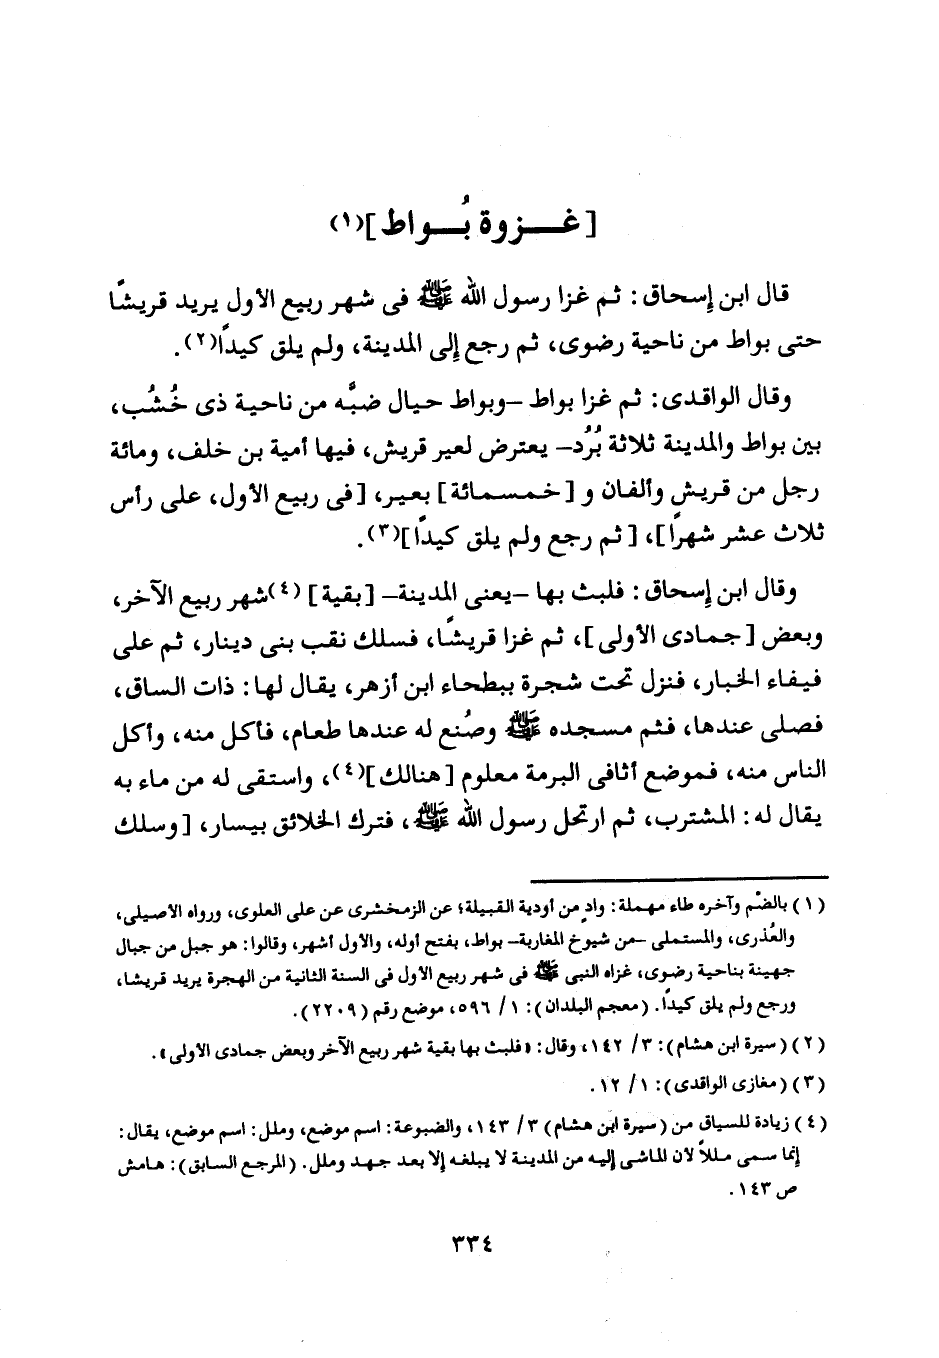 [غـــزوة بُـــواط](١)
قال ابن إسحاق: ثم غزا رسول الله ﷺ فى شهر ربيع الأول يريد قريشًا
حتى بواط من ناحية رضوى، ثم رجع إلى المدينة، ولم يلق كيدًا(٢).
وقال الواقدى: ثم غزا بواط -وبواط حيال ضبَّه من ناحية ذى خُشُب،
بين بواط والمدينة ثلاثة بُرُد- يعترض لعير قريش، فيها أمية بن خلف، ومائة
رجل من قريش وألفان و [خمسمائة] بعير، [فى ربيع الأول، على رأس
ثلاث عشر شهرًا]، [ثم رجع ولم يلق كيدًا](٣).
وقال ابن إسحاق: فلبث بها -يعنى المدينة- [بقية] (٤)شهر ربيع الآخر،
وبعض [جمادى الأولى]، ثم غزا قريشًا، فسلك نقب بنى دينار، ثم على
فيفاء الخبار، فنزل تحت شجرة ببطحاء ابن أزهر، يقال لها: ذات الساق،
فصلى عندها، فثم مسجده ﷺ وصُنع له عندها طعام، فأكل منه، وأكل
الناس منه، فموضع أثافى البرمة معلوم [هنالك](٤)، واستقى له من ماء به
يقال له: المشترب، ثم ارتحل رسول الله ﷺ، فترك الخلائق بيسار، [وسلك
(١) بالضَّم وآخره طاء مهملة: وادٍ من أودية القبيلة؛ عن الزمخشرى عن على العلوى، ورواه الأصيلى،
والعُذرى، والمستملى -من شيوخ المغاربة- بواط، بفتح أوله، والأول أشهر، وقالوا: هو جبل من جبال
جهينة بناحية رضوى، غزاه النبى ﷺ فى شهر ربيع الأول فى السنة الثانية من الهجرة يريد قريشا،
ورجع ولم يلق كيدًا. (معجم البلدان): ١/ ٥٩٦، موضع رقم (٢٢٠٩).
(٢) (سيرة ابن هشام): ٣/ ١٤٢، وقال: «فلبث بها بقية شهر ربيع الآخر وبعض جمادى الأولى».
(٣) (مغازى الواقدى): ١/ ١٢.
(٤) زيادة للسياق من (سيرة ابن هشام) ٣/ ١٤٣، والضبوعة: اسم موضع، وملل: اسم موضع، يقال:
إنما سمى مللاً لأن الماشى إليه من المدينة لا يبلغه إلا بعد جهد وملل. (المرجع السابق): هامش
ص ١٤٣.
٣٣٤